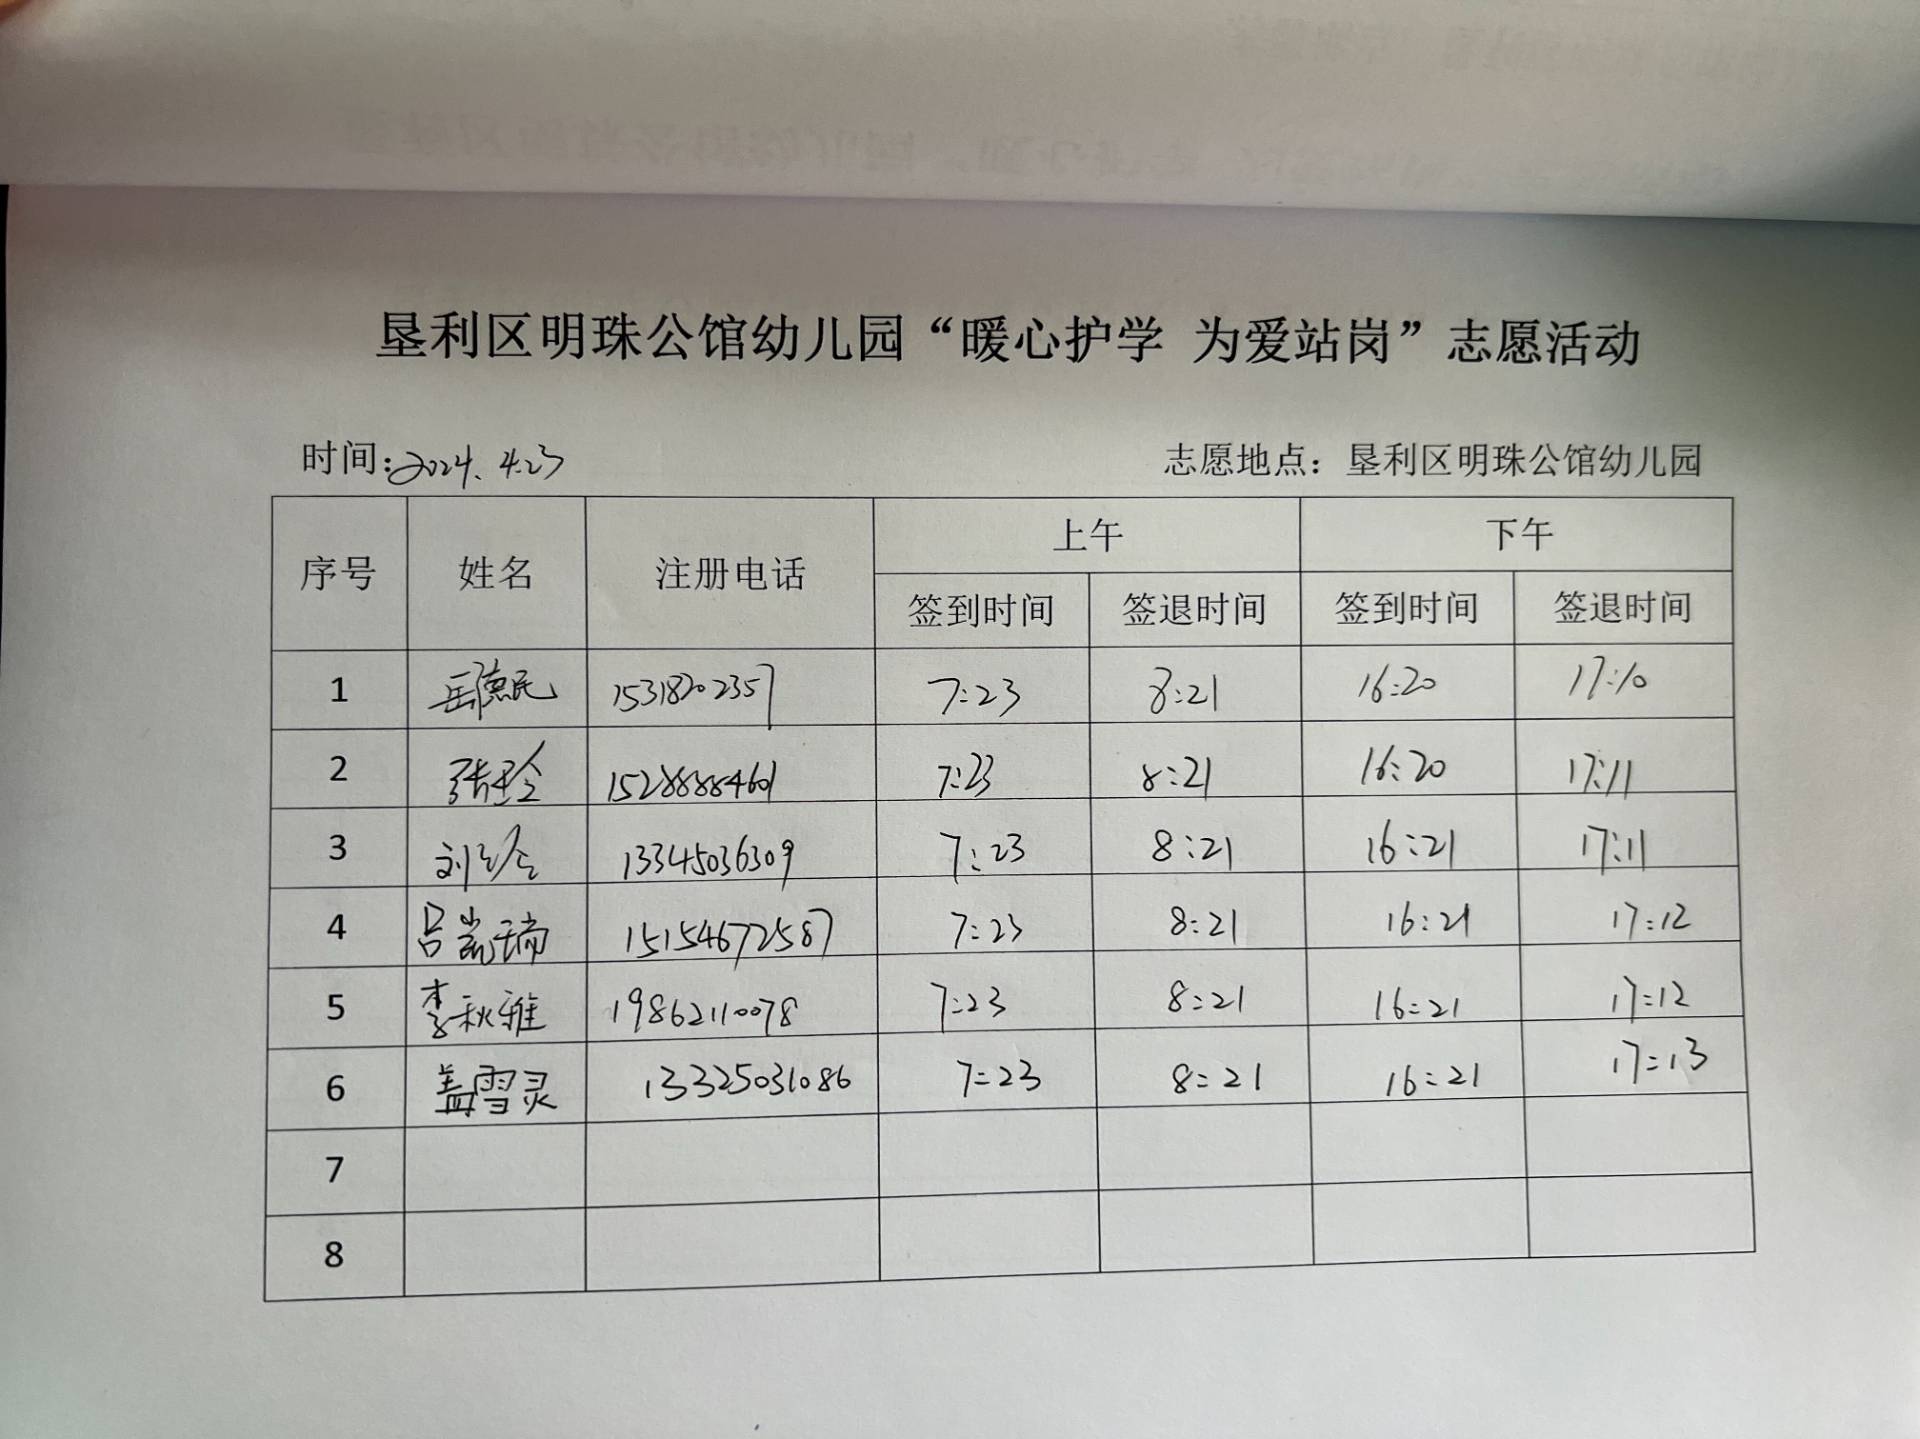 垦利区明珠公馆幼儿园“暖心护学 为爱站岗”志愿活动
时间:2024.4.23 志愿地点：垦利区明珠公馆幼儿园
序号 姓名 注册电话 上午 下午
签到时间 签退时间 签到时间 签退时间
1 岳德民 15318202357 7:23 8:21 16:20 17:10
2 张玲 15288884601 7:23 8:21 16:20 17:11
3 刘 13345036309 7:23 8:21 16:21 17:11
4 吕岚瑞 15154672587 7:23 8:21 16:21 17:12
5 李秋雅 19862110078 7:23 8:21 16:21 17:12
6 盖雪灵 13325031086 7:23 8:21 16:21 17:13
7
8